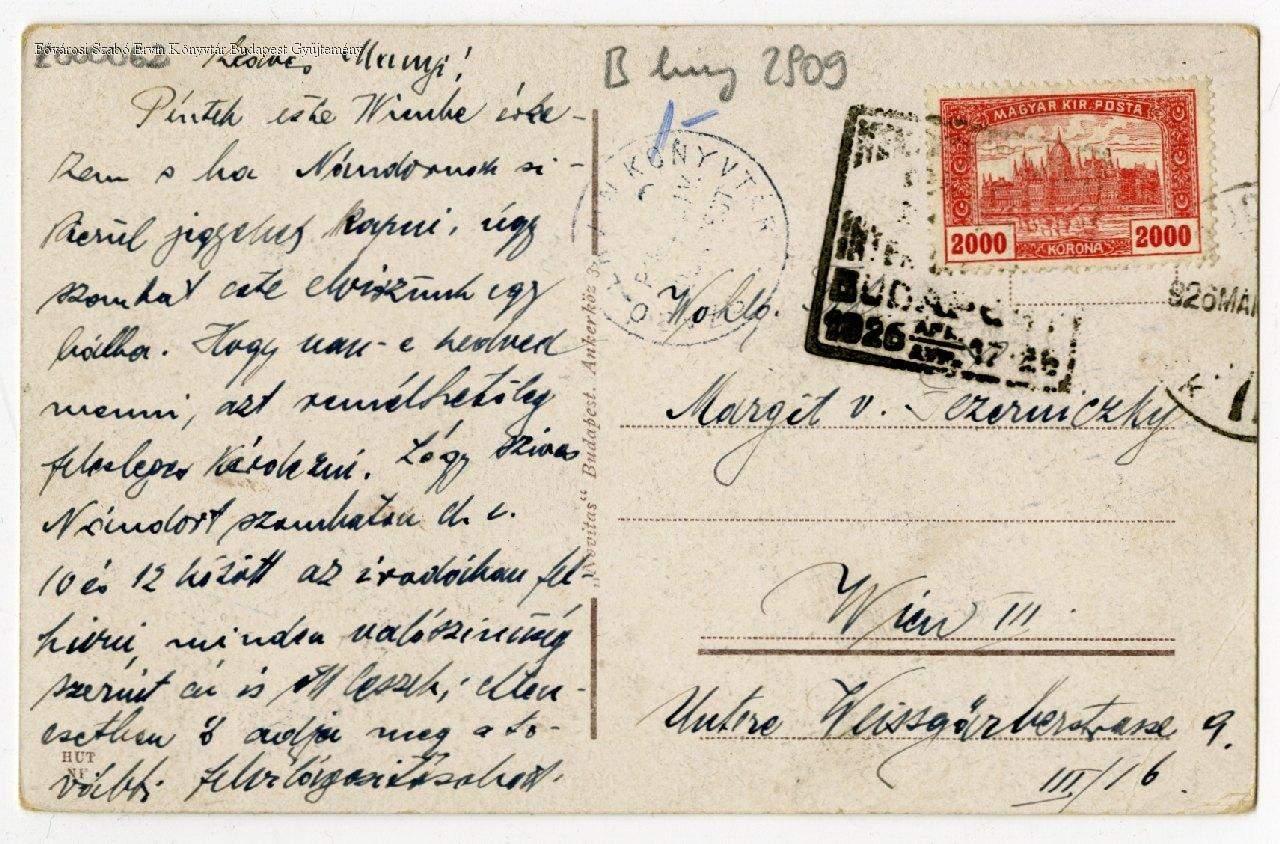 Fővárosi Szabó Ervin Könyvtár Budapest Gyűjtemény
2000062
Kedves Manyi!
Péntek este Wienbe érke-
zem s ha Nándornak si-
kerül jegyeket kapni, úgy
szombat este elviszünk egy
bálba. Hogy van-e kedved
menni, azt remélhetőleg
felesleges kérdezni. Légy szives
Nándort szombaton d. e.
10 és 12 között az irodában fel-
hivni minden valószinüség
szerint én is ott leszek; ellen-
esetben ő adja meg a to-
vábbi felvilágositásokat.
HUT
B hung 2909
KÖNYVTÁR
"Novitas" Budapest, Ankerköz 3.
MAGYAR KIR. POSTA
2000 KORONA 2000
BUDAPEST
1926 APR. 17-26
926 MAR
Wohlg.
Margit v. Czerniczky
Wien III
Untere Weissgärberstrasse 9.
III/16.